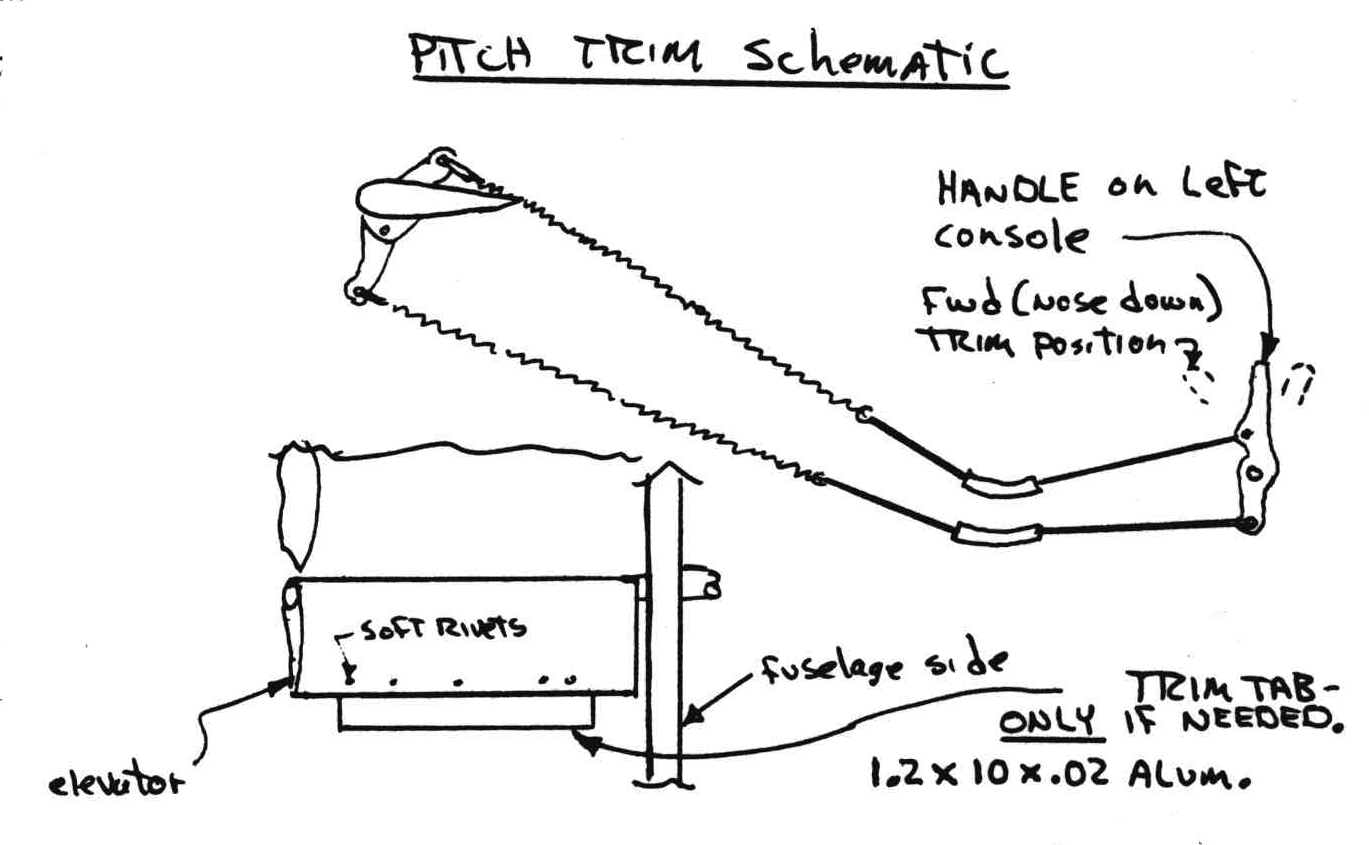 PITCH TRIM SchemATIC
HANDLE on Left
console
Fwd (Nose down)
TRIM Position
SOFT RIVETS
fuselage side
TRIM TAB-
ONLY IF NEEDED.
1.2 x 10 x .02 ALUM.
elevator